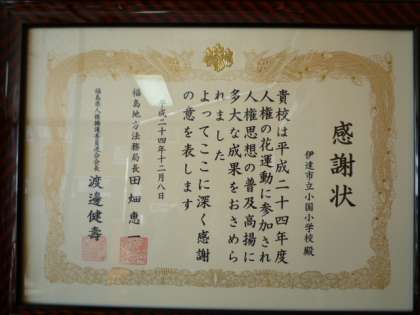 感謝状
伊達市立小国小学校 殿
貴校は平成二十四年度
人権の花運動に参加され
人権思想の普及高揚に
多大な成果をおさめら
れました
よってここに深く感謝
の意を表します
平成二十四年十二月八日
福島地方法務局長 田畑恵一
福島県人権擁護委員連合会会長 渡邊健壽